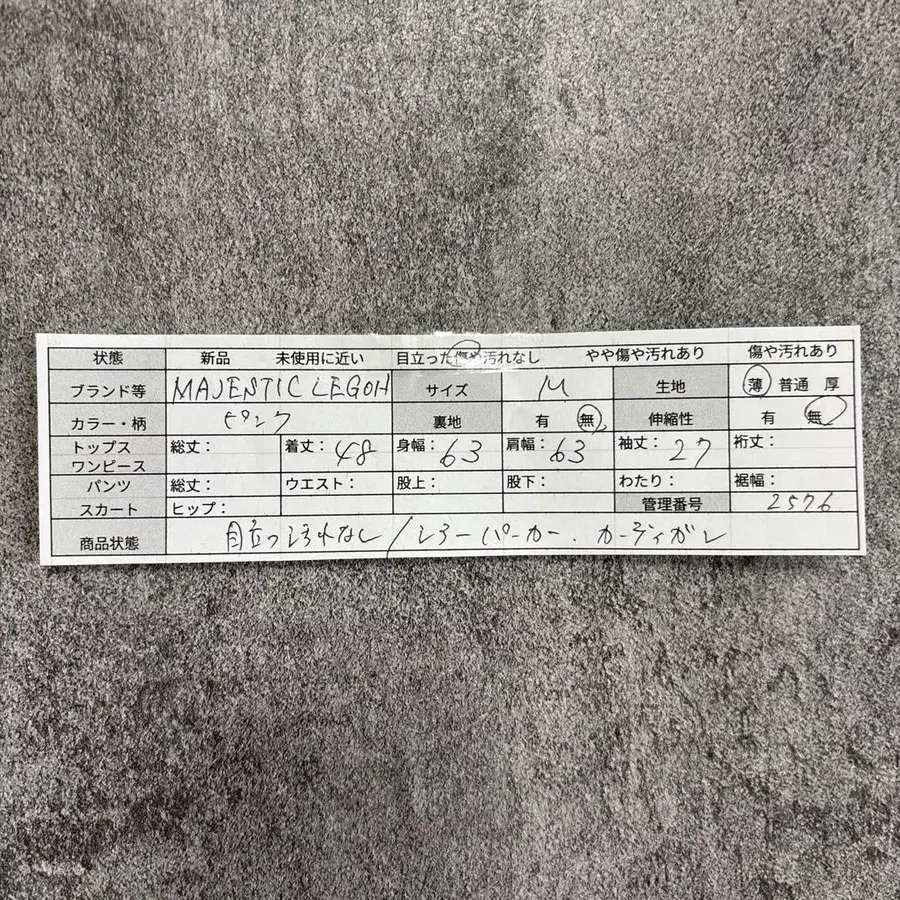 状態 新品 未使用に近い 目立った傷や汚れなし やや傷や汚れあり 傷や汚れあり
ブランド等 MAJESTIC LEGON サイズ M 生地 薄 普通 厚
カラー・柄 ピンク 裏地 有 無 伸縮性 有 無
トップス ワンピース 総丈： 着丈：48 身幅：63 肩幅：63 袖丈：27 裄丈：
パンツ 総丈： ウエスト： 股上： 股下： わたり： 裾幅：
スカート ヒップ： 管理番号 2576
商品状態 目立つ汚れなし/シアーパーカー、カーディガン